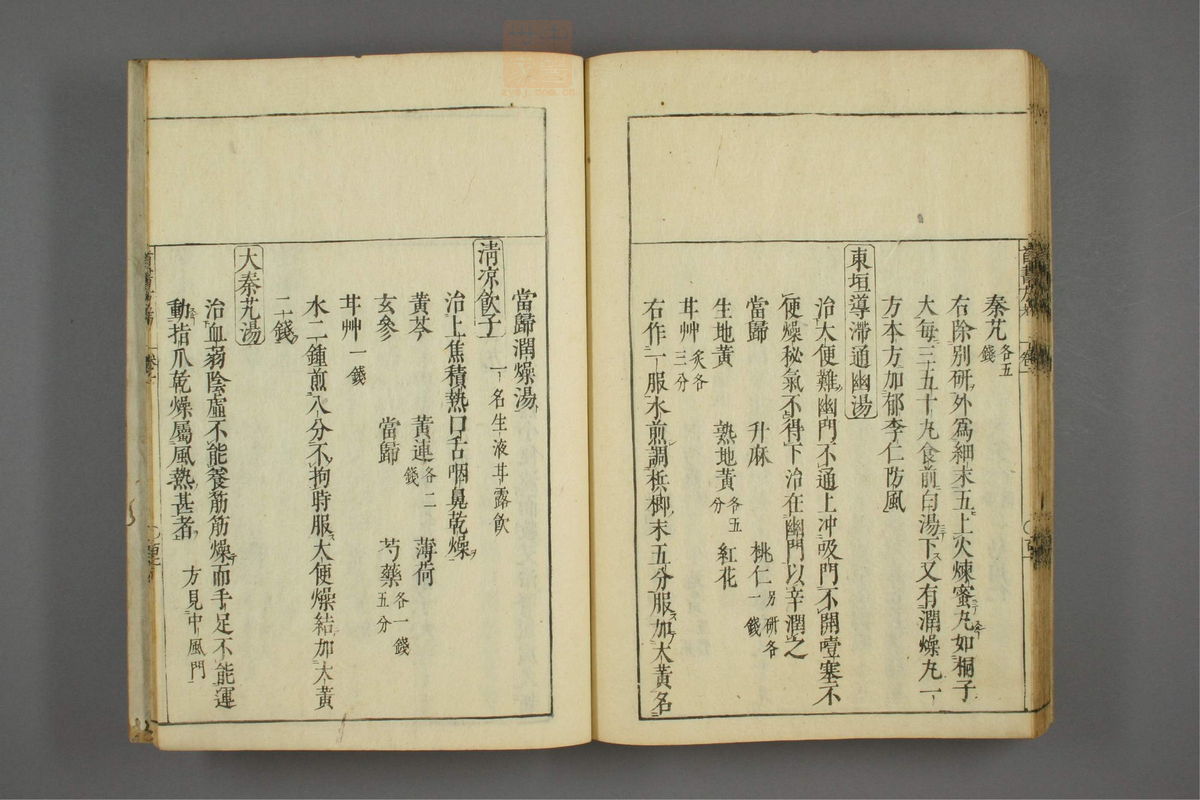 秦艽各五錢
右除別研外爲細末五上火煉蜜丸如桐子
大每三五十丸食前白湯下又有潤燥丸一
方本方加郁李仁防風
東垣導滯通幽湯
治大便難幽門不通上冲吸門不開噎塞不
便燥秘氣不得下治在幽門以辛潤之
當歸 升麻 桃仁另研各一錢
生地黃 熟地黃各五分 紅花
甘艸炙各三分
右作一服水煎調梹榔末五分服加大黃名
當歸潤燥湯
清凉飲子一名生液甘露飲
治上焦積熱口舌咽鼻乾燥
黃芩 黃連各二錢 薄荷
玄參 當歸 芍藥各一錢五分
甘艸一錢
水二鍾煎八分不拘時服大便燥結加大黃
二錢
大秦艽湯
治血弱陰虛不能養筋筋燥而手足不能運
動指爪乾燥屬風熱甚者方見中風門